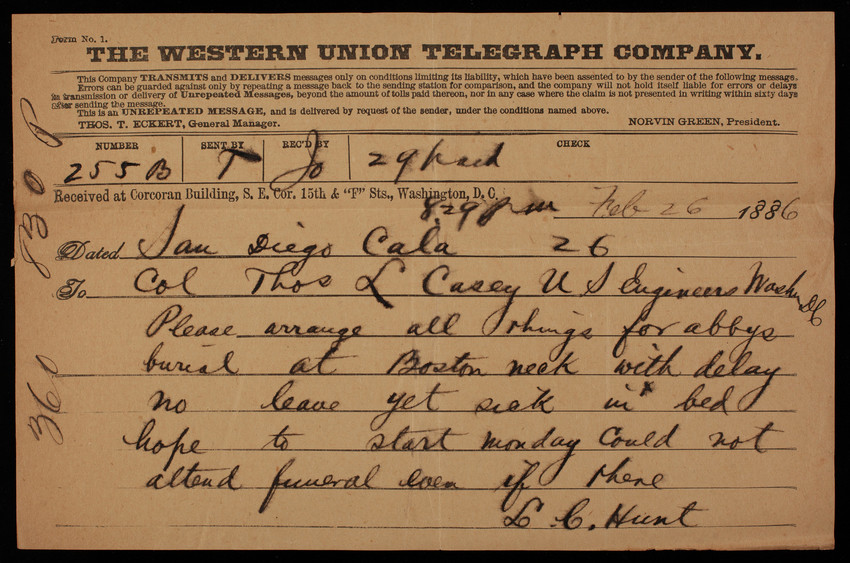 Form No. 1.
THE WESTERN UNION TELEGRAPH COMPANY.
This Company TRANSMITS and DELIVERS messages only on conditions limiting its liability, which have been assented to by the sender of the following message.
Errors can be guarded against only by repeating a message back to the sending station for comparison, and the company will not hold itself liable for errors or delays
in transmission or delivery of Unrepeated Messages, beyond the amount of tolls paid thereon, nor in any case where the claim is not presented in writing within sixty days
after sending the message.
This is an UNREPEATED MESSAGE, and is delivered by request of the sender, under the conditions named above.
THOS. T. ECKERT, General Manager. NORVIN GREEN, President.
NUMBER SENT BY REC'D BY CHECK
255 B T Jo 29 Paid
Received at Corcoran Building, S. E. Cor. 15th & "F" Sts., Washington, D. C.
8.29 pm Feb 26 1886
Dated San Diego Cala 26
To Col Thos L Casey U S Engineers Washn DC
Please arrange all things for abbys
burial at Boston neck with delay
no leave yet sick in bed
hope to start monday Could not
attend funeral even if there
L. C. Hunt
830 P
360